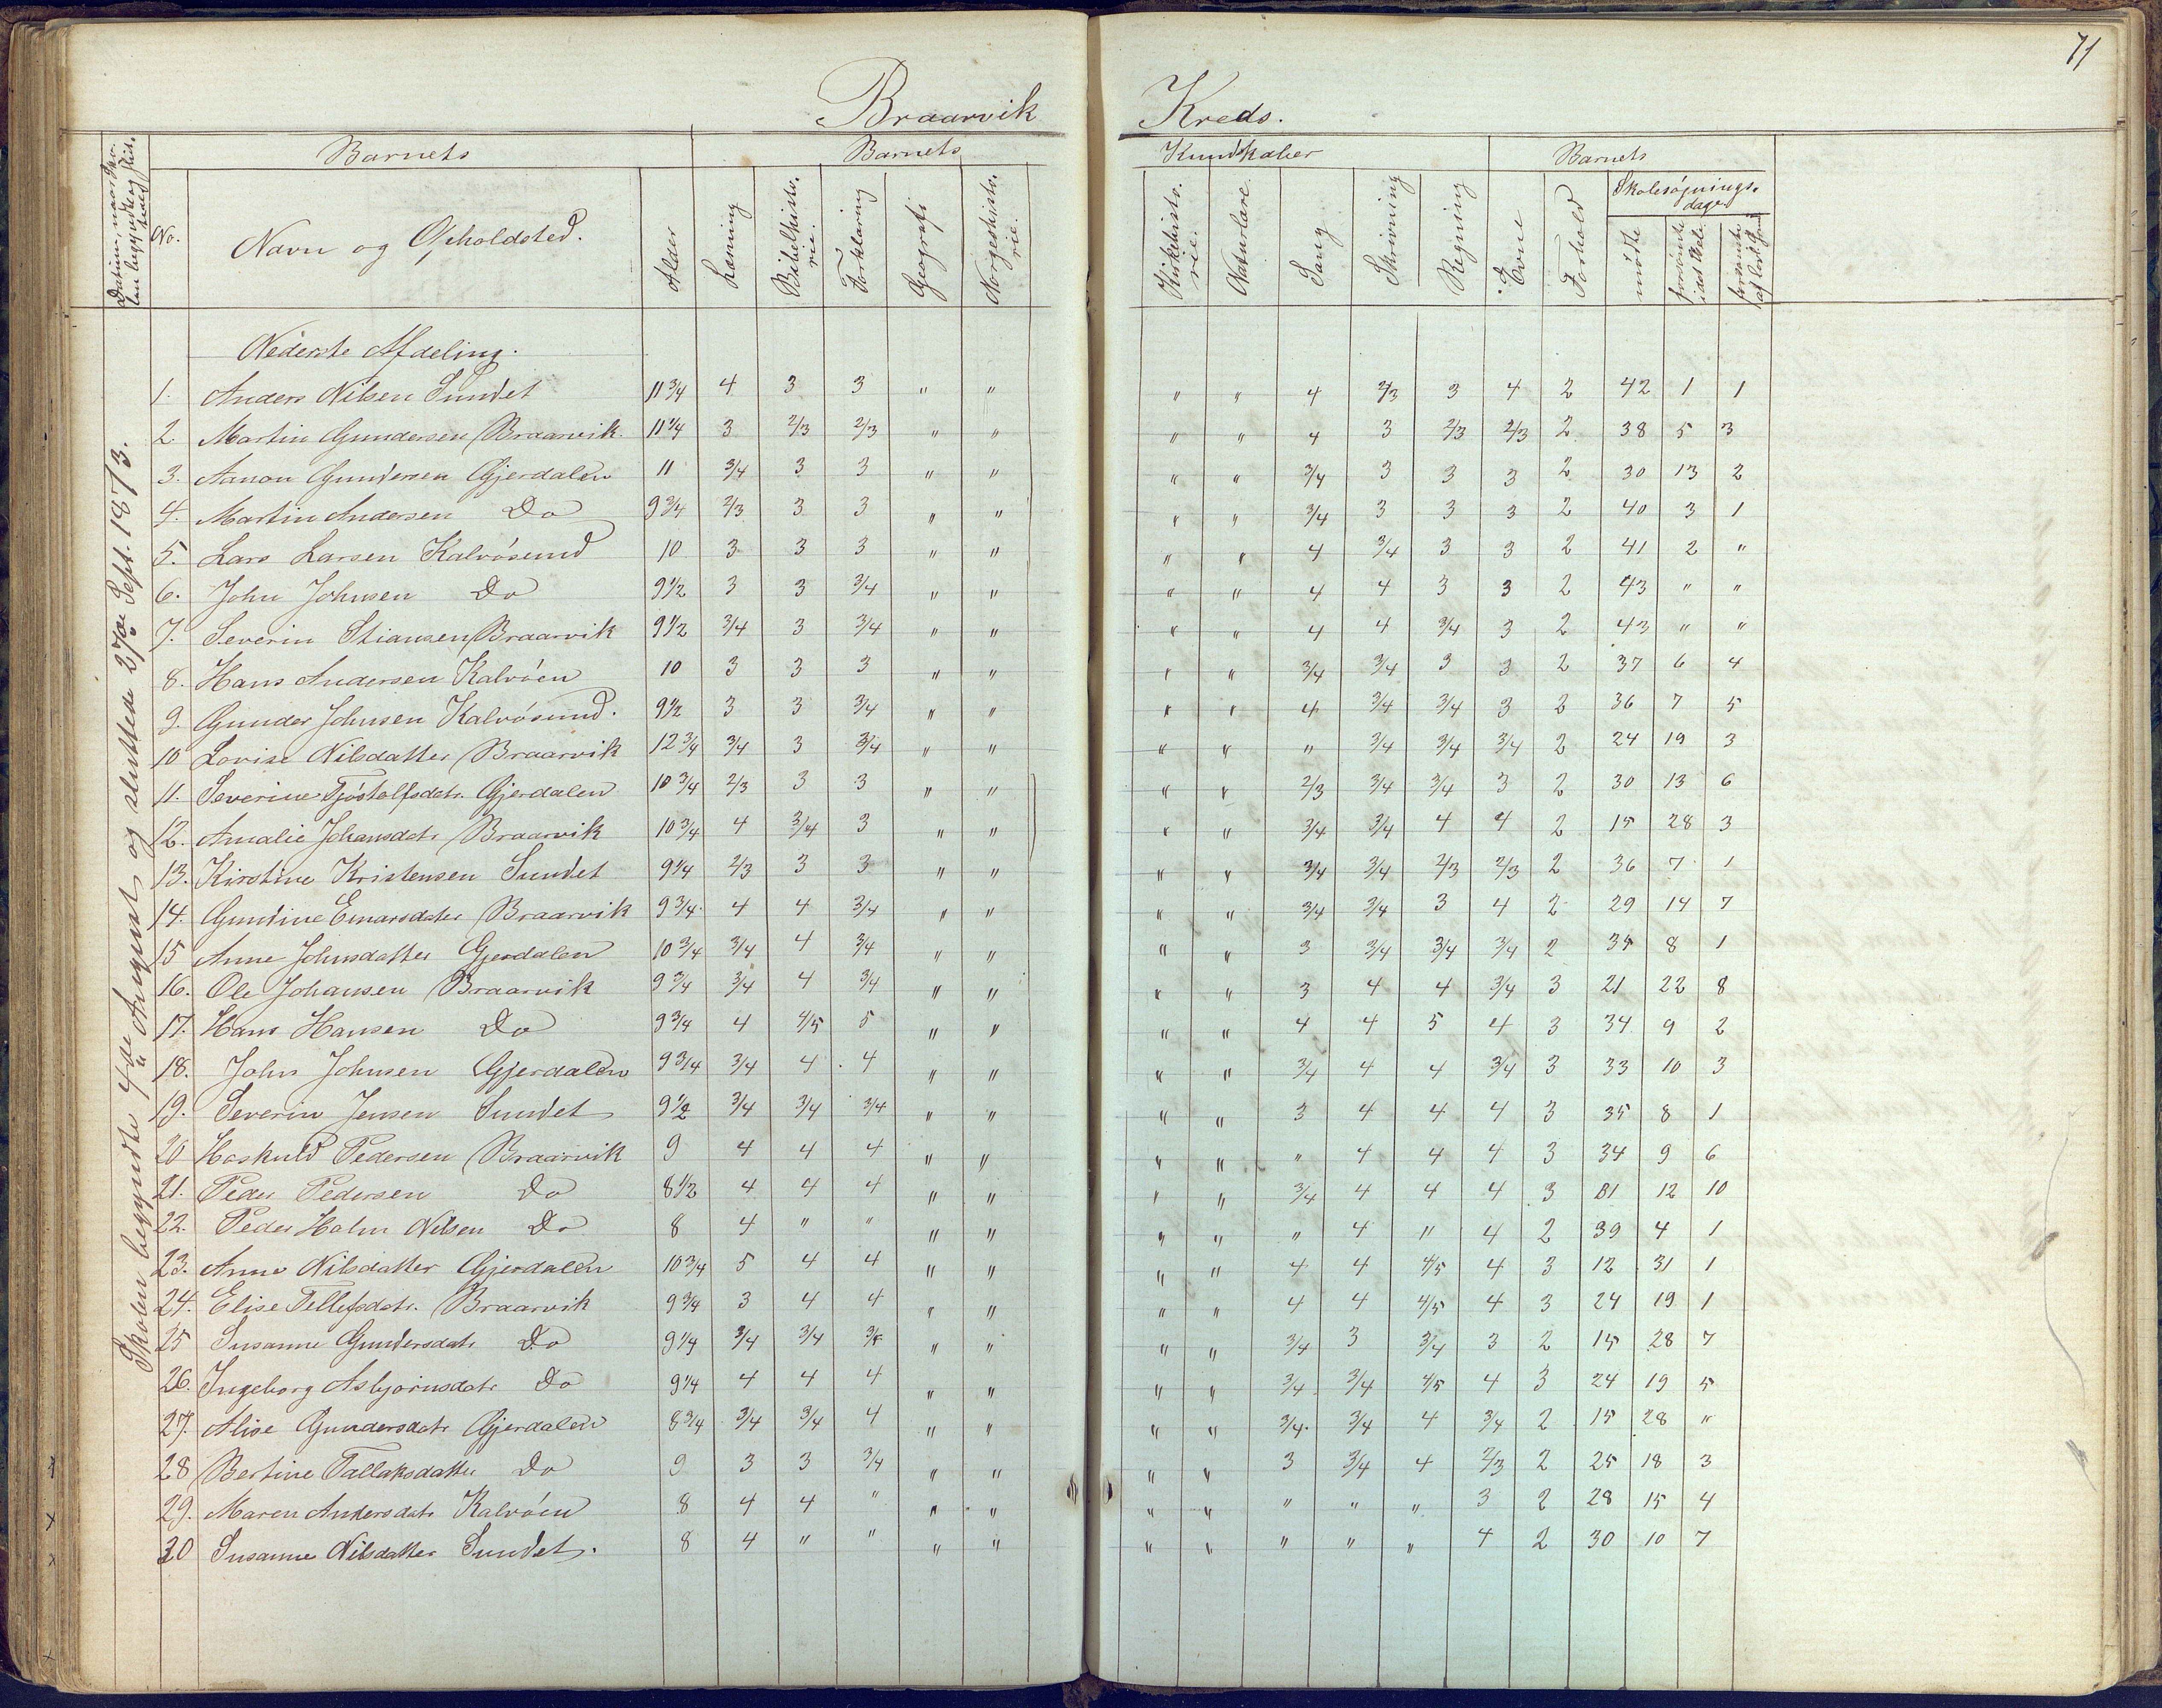 71
Braarvik Kreds.
Datum, naar Skolen begyndte og sluttedes
Barnets Barnets Kundskaber Barnets
No. Navn og Opholdsted. Alder Læsning Bibelhistorie. Forklaring Geografi Norgeshistorie. Kirkehistorie. Naturlære Sang Skrivning Regning Evne Forhold Skolesøgningsdage
mødte forsømte i det Hele forsømte af lovl. Grund
Skolen begyndte 4de August og sluttede 27de Sept. 1873.
Nederste Afdeling.
1. Anders Nilsen Sundet 11 3/4 4 3 3 " " " " 4 2/3 3 4 2 42 1 1
2 Martin Gundersen Braarvik. 11 1/4 3 2/3 2/3 " " " " 4 3 2/3 2/3 2 38 5 3
3. Aanon Gundersen Gjerdalen 11 3/4 3 3 " " " " 3/4 3 3 3 2 30 13 2
4. Martin Andersen Do 9 3/4 2/3 3 3 " " " " 3/4 3 3 3 2 40 3 1
5. Lars Larsen Kalvøsund 10 3 3 3 " " " " 4 3/4 3 3 2 41 2 "
6. John Johnsen Do 9 1/2 3 3 3/4 " " " " 4 4 3 3 2 43 " "
7. Severin Stiansen Braarvik 9 1/2 3/4 3 3/4 " " " " 4 4 3/4 3 2 43 " "
8. Hans Andersen Kalvøen 10 3 3 3 " " " " 3/4 3/4 3 3 2 37 6 4
9. Gunder Johnsen Kalvøsund. 9 1/2 3 3 3/4 " " " " 4 3/4 3/4 3 2 36 7 5
10 Lovise Nilsdatter Braarvik 12 3/4 3/4 3 3/4 " " " " " 3/4 3/4 3/4 2 24 19 3
11. Severine Tjöstolfsdatr. Gjerdalen 10 3/4 2/3 3 3 " " " " 2/3 3/4 3/4 3 2 30 13 6
12. Amalie Johansdatr Braarvik 10 3/4 4 3/4 3 " " " " 3/4 3/4 4 4 2 15 28 3
13. Kirstine Kristensen Sundet 9 1/4 2/3 3 3 " " " " 3/4 3/4 2/3 2/3 2 36 7 1
14. Gundine Einarsdater Braarvik 9 3/4 4 4 3/4 " " " " 3/4 3/4 3 4 2 29 14 7
15 Anne Johnsdatter Gjerdalen 10 3/4 3/4 4 3/4 " " " " 3 3/4 3/4 3/4 2 35 8 1
16. Ole Johansen Braarvik 9 3/4 3/4 4 3/4 " " " " 3 4 4 3/4 3 21 22 8
17. Hans Hansen Do 9 3/4 4 4/5 5 " " " " 4 4 5 4 3 34 9 2
18. John Johnsen Gjerdalen 9 3/4 3/4 4 4 " " " " 3/4 4 4 3/4 3 33 10 3
19. Severin Jensen Sundet 9 1/2 3/4 3/4 3/4 " " " " 3 4 4 4 3 35 8 1
20 Haskuld Pedersen Braarvik 9 4 4 4 " " " " " 4 4 4 3 34 9 6
21. Peder Pedersen Do 8 1/2 4 4 4 " " " " 3/4 4 4 4 3 31 12 10
22. Peder Holm Nilsen Do 8 4 " " " " " " " 4 " 4 2 39 4 1
23. Anne Nilsdatter Gjerdalen 10 3/4 5 4 4 " " " " 4 4 4/5 4 3 12 31 1
24. Elise Tellefsdatr. Braarvik 9 3/4 3 4 4 " " " " 4 4 4/5 4 3 24 19 1
25 Susanne Gundersdatr Do 9 1/4 3/4 3/4 3/4 " " " " 3/4 3 3/4 3 2 15 28 7
26. Ingeborg Asbjørnsdatr Do 9 1/4 4 4 4 " " " " 3/4 3/4 4/5 4 3 24 19 5
27. Alise Gundersdatr Gjerdalen 8 3/4 3/4 3/4 4 " " " " 3/4 3/4 4 3/4 2 15 28 "
28 Bertine Tallaksdatter Do 9 3 3 3/4 " " " " 3 3/4 4 2/3 2 25 18 3
29. Maren Andersdatr Kalvøen 8 4 4 " " " " " " " " 3 2 28 15 4
30 Susanne Nilsdatter Sundet. 8 4 " " " " " " " " " 4 2 30 10 7